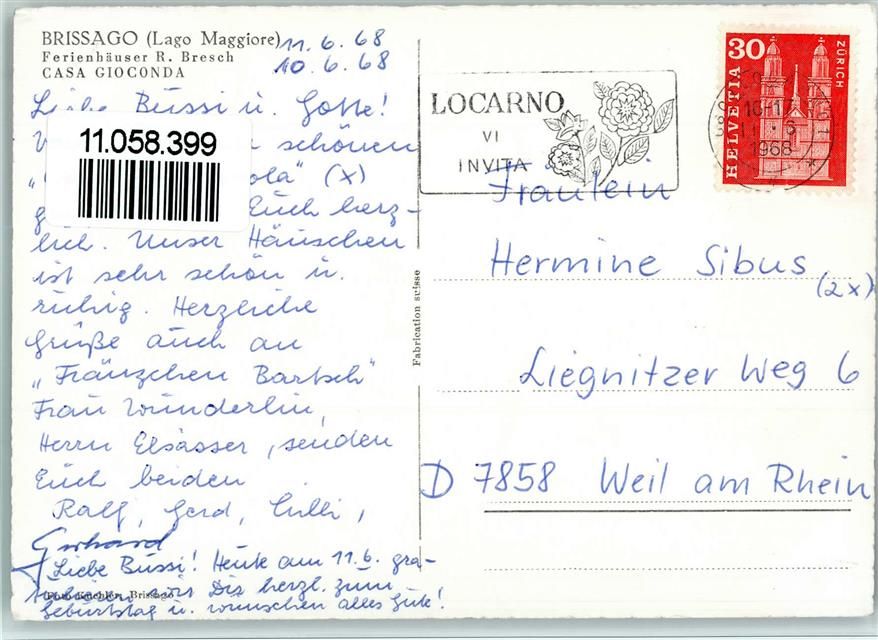 BRISSAGO (Lago Maggiore)
Ferienhäuser R. Bresch
CASA GIOCONDA
11.6.68
10.6.68
Liebe Bussi u. Gotte!
schönen
11.058.399
ola" (x)
Euch herz-
lich. Unser Häuschen
ist sehr schön u.
ruhig. Herzliche
Grüße auch an
„Fränzchen Bartsch"
Frau Wunderlin,
Herrn Elsässer, senden
Euch beiden
Ralf, Gerd, Lilli,
Gerhard
Liebe Bussi! Heute am 11.6. gra-
tulieren wir Dir herzl. zum
Geburtstag u. wünschen alles Gute!
Brissago
Fabrication suisse
LOCARNO
VI
INVITA
30
HELVETIA
ZÜRICH
1968
Fräulein
Hermine Sibus
(2x)
Liegnitzer Weg 6
D 7858 Weil am Rhein